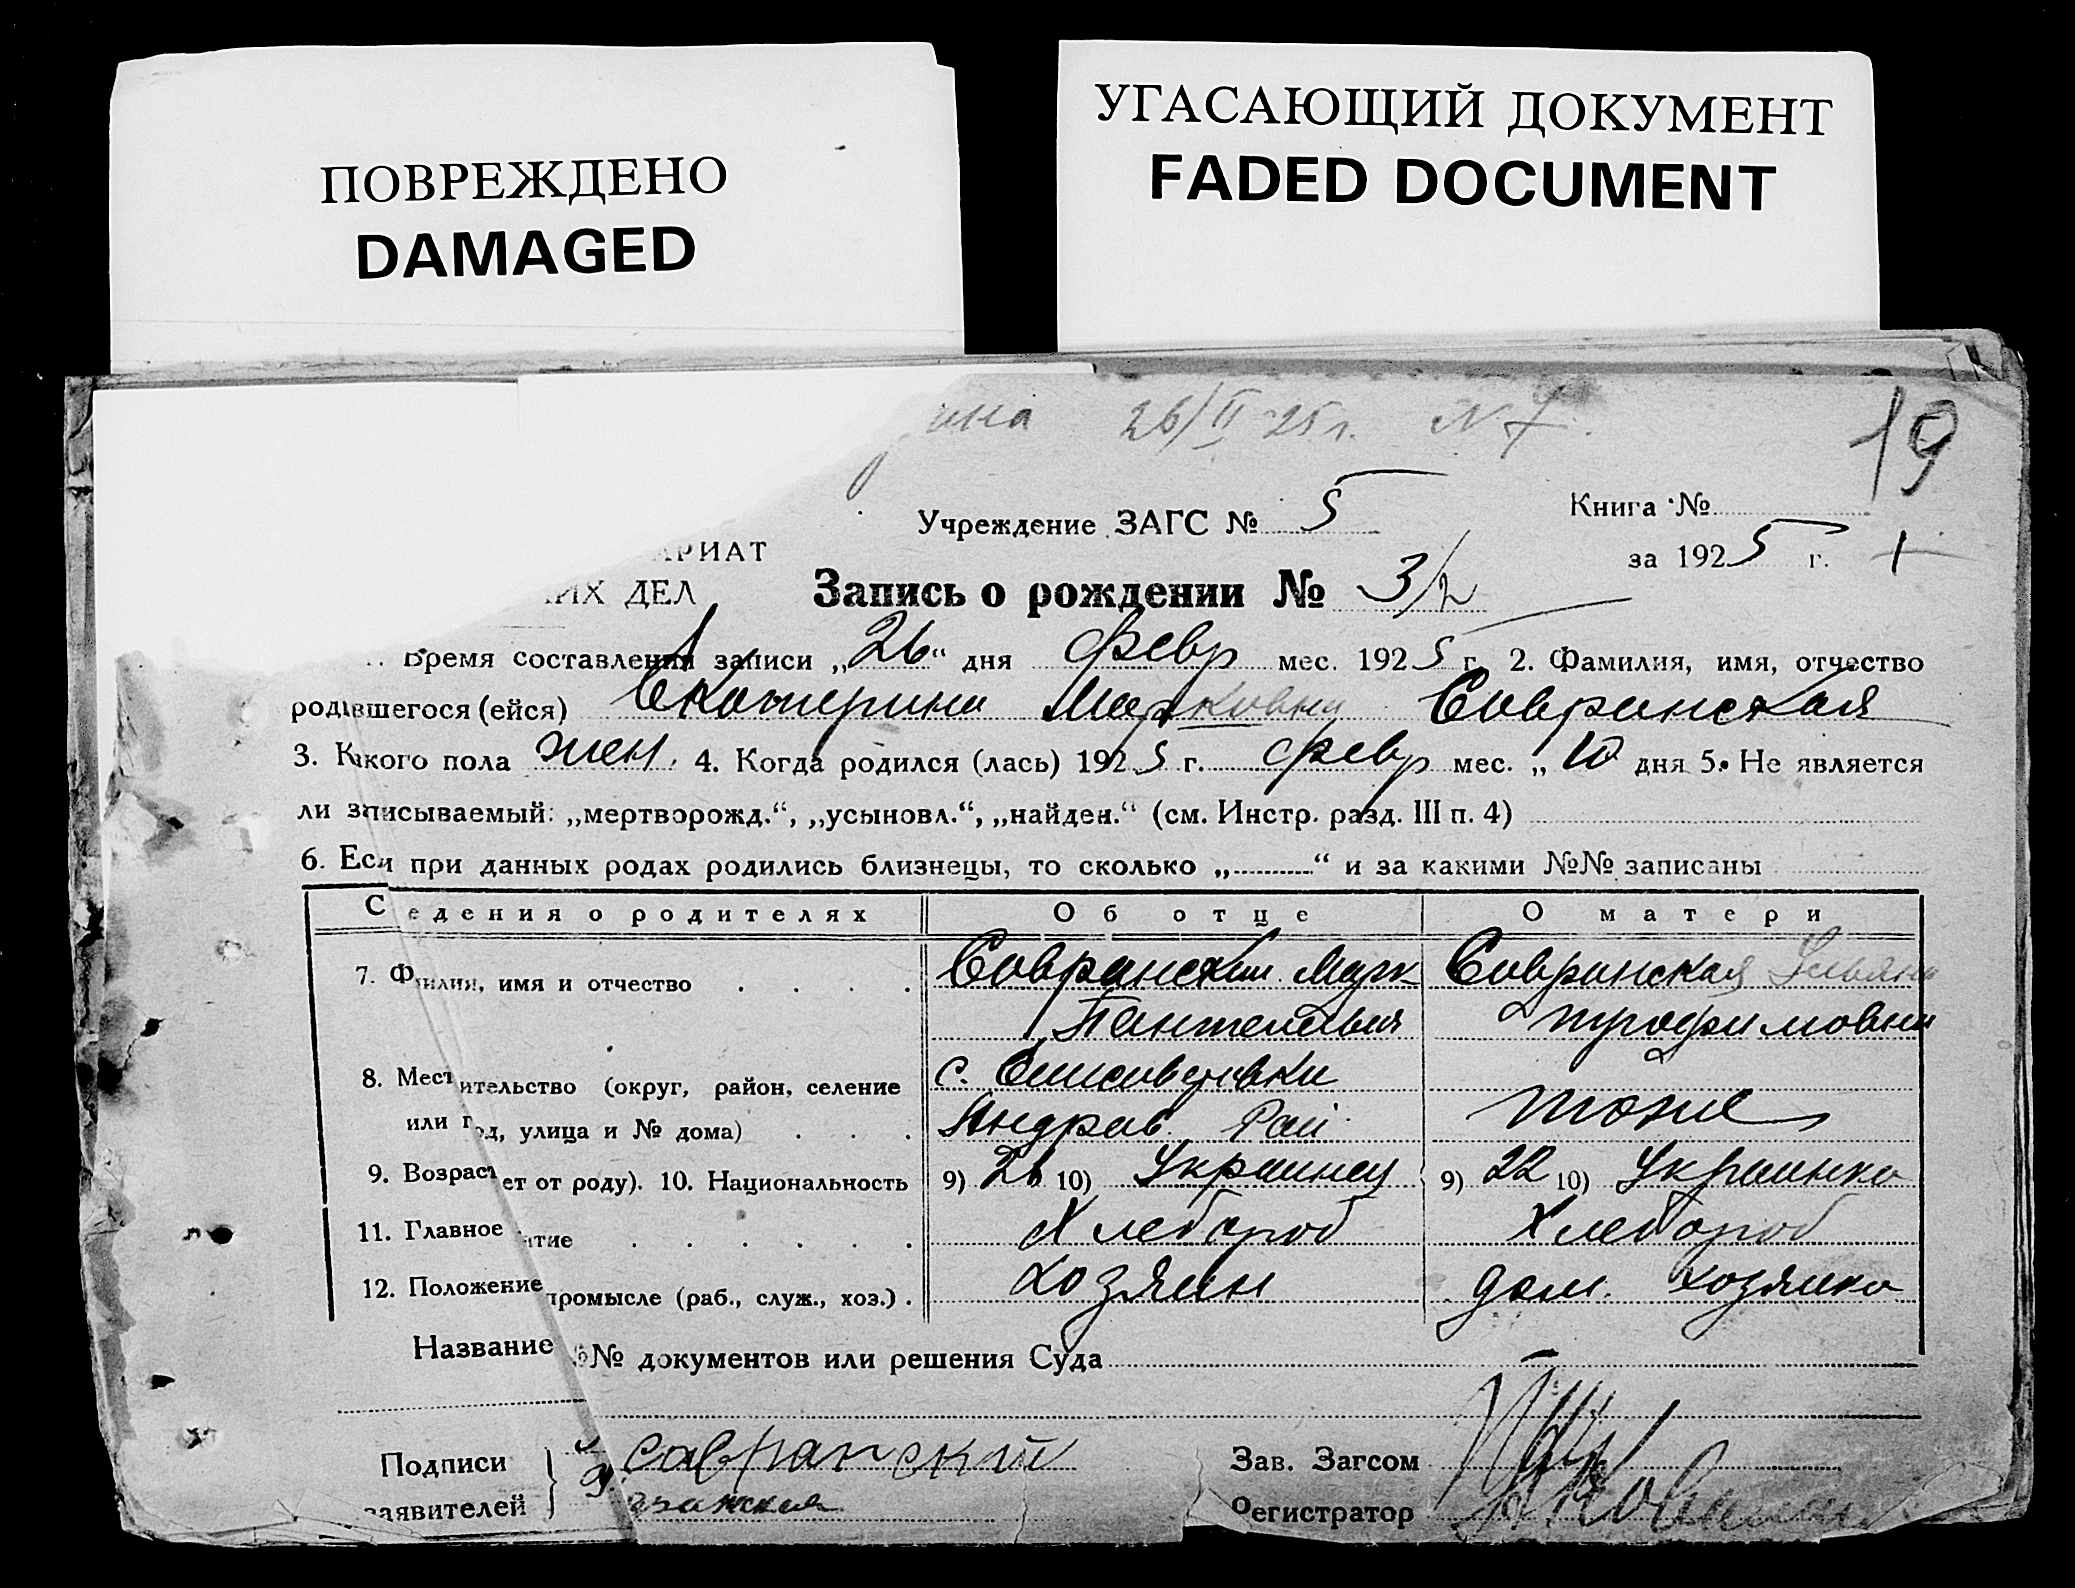 ПОВРЕЖДЕНО
DAMAGED
УГАСАЮЩИЙ ДОКУМЕНТ
FADED DOCUMENT
ина 26/II 25 г. N 7
19
Учреждение ЗАГС № 5
Книга №
АРИАТ
за 1925 г.
ИХ ДЕЛ
Запись о рождении № 3/2
Время составления записи „26“ дня февр мес. 1925 г. 2. Фамилия, имя, отчество
родившегося (ейся) Екатерина Марковна Савранская
3. Какого пола жен. 4. Когда родился (лась) 1925 г. февр мес. „10 дня 5. Не является
ли записываемый: „мертворожд.“, „усыновл.“, „найден.“ (см. Инстр. разд. III п. 4)
6. Если при данных родах родились близнецы, то сколько „ “ и за какими №№ записаны
Сведения о родителях Об отце О матери
7. Ф милия, имя и отчество Савранский Марк Савранская Ульяна
Пантелеевич Трофимовна
8. Мест ительство (округ, район, селение с. Елисаветовка
или год, улица и № дома) Андреев. Рай тоже
9. Возраст ет от роду). 10. Национальность 9) 26 10) Украинец 9) 22 10) Украинка
11. Главное ятие Хлебороб Хлебороб
12. Положение промысле (раб., служ., хоз.) хозяин дом. хозяйка
Название №№ документов или решения Суда
Подписи Савранский Зав. Загсом
заявителей Регистратор